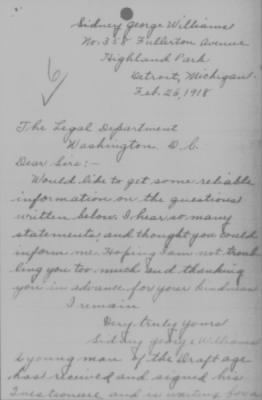 Sidney George Williams
No. 358 Fullerton Avenue
Highland Park
Detroit, Michigan
Feb. 26, 1918
6 ✓
The Legal Department
Washington D.C.
Dear Sirs:-
Would like to get some reliable
information on the questions
written below. I hear so many
statements, and thought you could
inform me. Hoping I am not troub-
ling you too much and thanking
you in advance for your kindness
I remain
Very truly yours
Sidney George Williams
A young man of the Draft age
has received and signed his
and is waiting for a